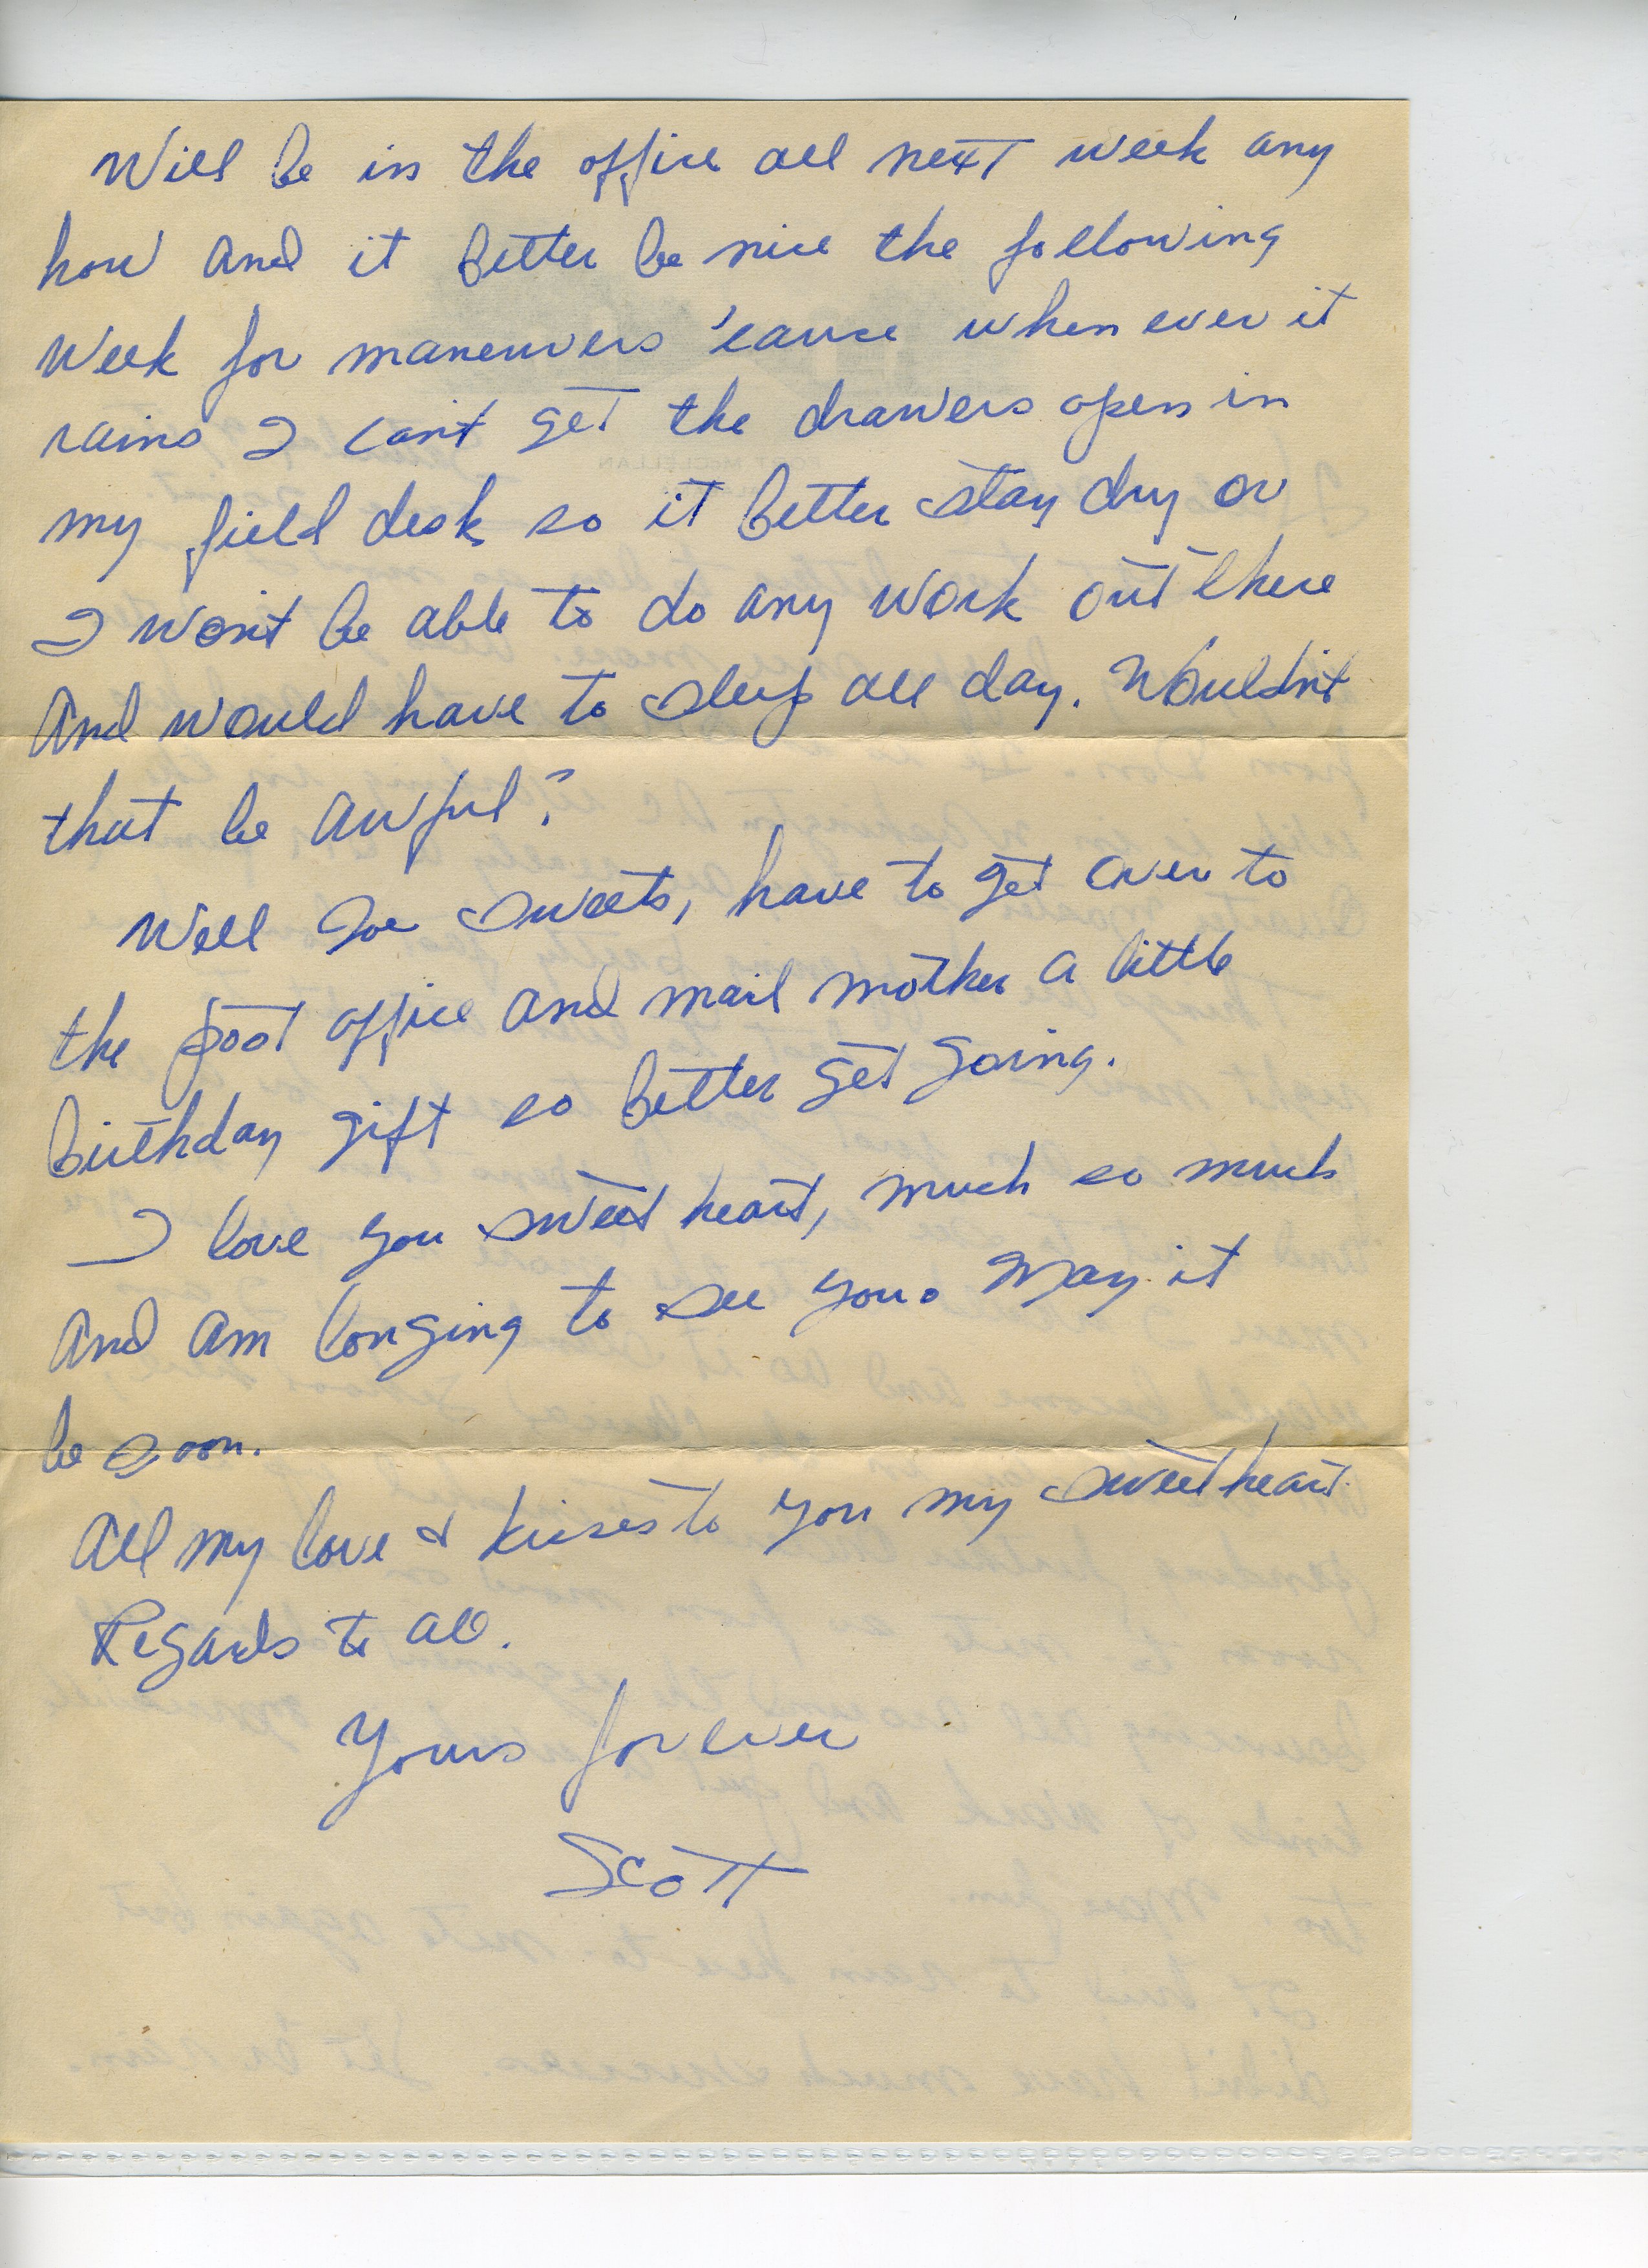 Will be in the office all next week any
how and it better be nice the following
week for maneuvers 'cause when ever it
rains I can't get the drawers open in
my field desk so it better stay dry or
I won't be able to do any work out there
and would have to sleep all day. Wouldn't
that be awful?
Well Joe sweets, have to get over to
the post office and mail mother a little
birthday gift so better get going.
I love you sweet heart, much so much
and am longing to see you. May it
be soon.
All my love & kisses to you my sweetheart.
Regards to all.
Yours forever
Scott